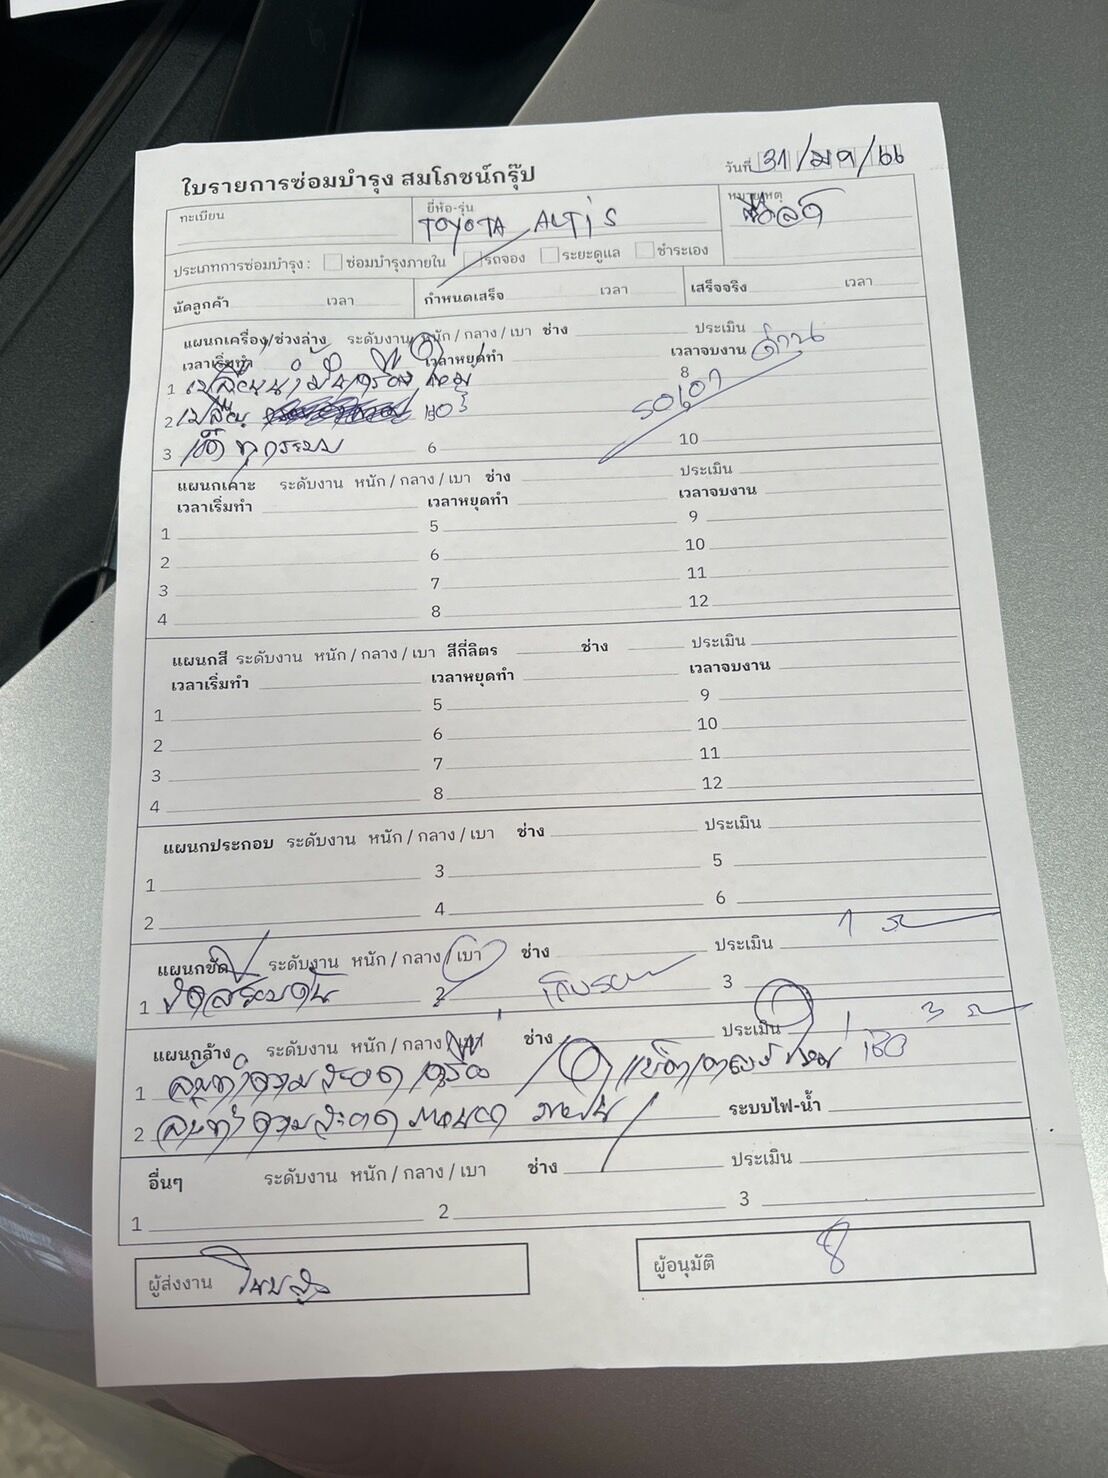 ใบรายการซ่อมบำรุง สมโภชน์กรุ๊ป
วันที่ 31/มค/66
ทะเบียน
ยี่ห้อ-รุ่น
TOYOTA ALTIS
หมายเหตุ
ประเภทการซ่อมบำรุง : ซ่อมบำรุงภายใน รถจอง ระยะดูแล ชำระเอง
นัดลูกค้า เวลา กำหนดเสร็จ เวลา เสร็จจริง เวลา
แผนกเครื่อง/ช่วงล่าง ระดับงาน หนัก / กลาง / เบา ช่าง ประเมิน
เวลาเริ่มทำ เวลาหยุดทำ เวลาจบงาน ด่วน
1 เปลี่ยนน้ำมันเครื่อง 8
2 เปลี่ยน
3 เช็คทุกระบบ 6 10
แผนกเคาะ ระดับงาน หนัก / กลาง / เบา ช่าง ประเมิน
เวลาเริ่มทำ เวลาหยุดทำ เวลาจบงาน
1 5 9
2 6 10
3 7 11
4 8 12
แผนกสี ระดับงาน หนัก / กลาง / เบา สีกี่ลิตร ช่าง ประเมิน
เวลาเริ่มทำ เวลาหยุดทำ เวลาจบงาน
1 5 9
2 6 10
3 7 11
4 8 12
แผนกประกอบ ระดับงาน หนัก / กลาง / เบา ช่าง ประเมิน
1 3 5
2 4 6
แผนกขัด ระดับงาน หนัก / กลาง / เบา ช่าง ประเมิน
1 2 3
แผนกล้าง ระดับงาน หนัก / กลาง ช่าง ประเมิน
1 ล้างทำความสะอาดเครื่อง
2 ล้างทำความสะอาด ภายนอก ภายใน ระบบไฟ-น้ำ
อื่นๆ ระดับงาน หนัก / กลาง / เบา ช่าง ประเมิน
1 2 3
ผู้ส่งงาน
ผู้อนุมัติ